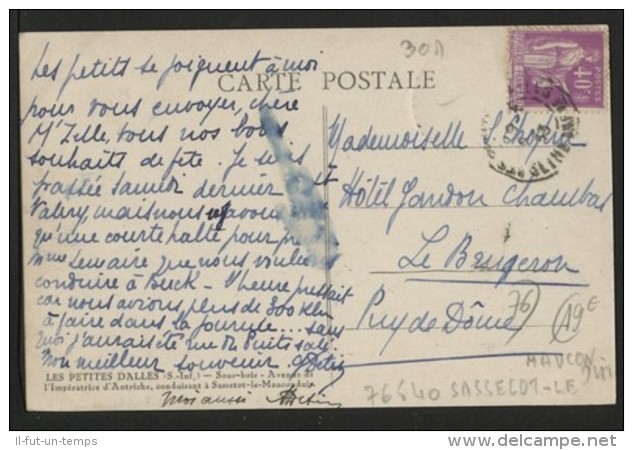 301
CARTE POSTALE
Les petits se joignent à moi
pour vous envoyer, chère
Melle, tous nos bons
souhaits de fête. Je suis
passée samedi dernier à St
Valery, mais nous n'avons
qu'une courte halte pour
Mme Lemaire que nous voulions
conduire à Berck - l'heure pressait
car nous avions plus de 300 Klm
à faire dans la journée... sans
quoi j'aurais été rue du Puits salé
Mon meilleur souvenir
Moi aussi
Mademoiselle S.
Hôtel Jandon Chambas
Le Brugeron
Puy de Dôme
76
19E
MAUCON
76540 SASSEGOT-LE
LES PETITES DALLES (S.-Inf.) — Sous-bois - Avenue de
l'Impératrice d'Autriche, conduisant à Sassetot-le-Mauconduit
Il-fut-un-temps
© delcampe.net